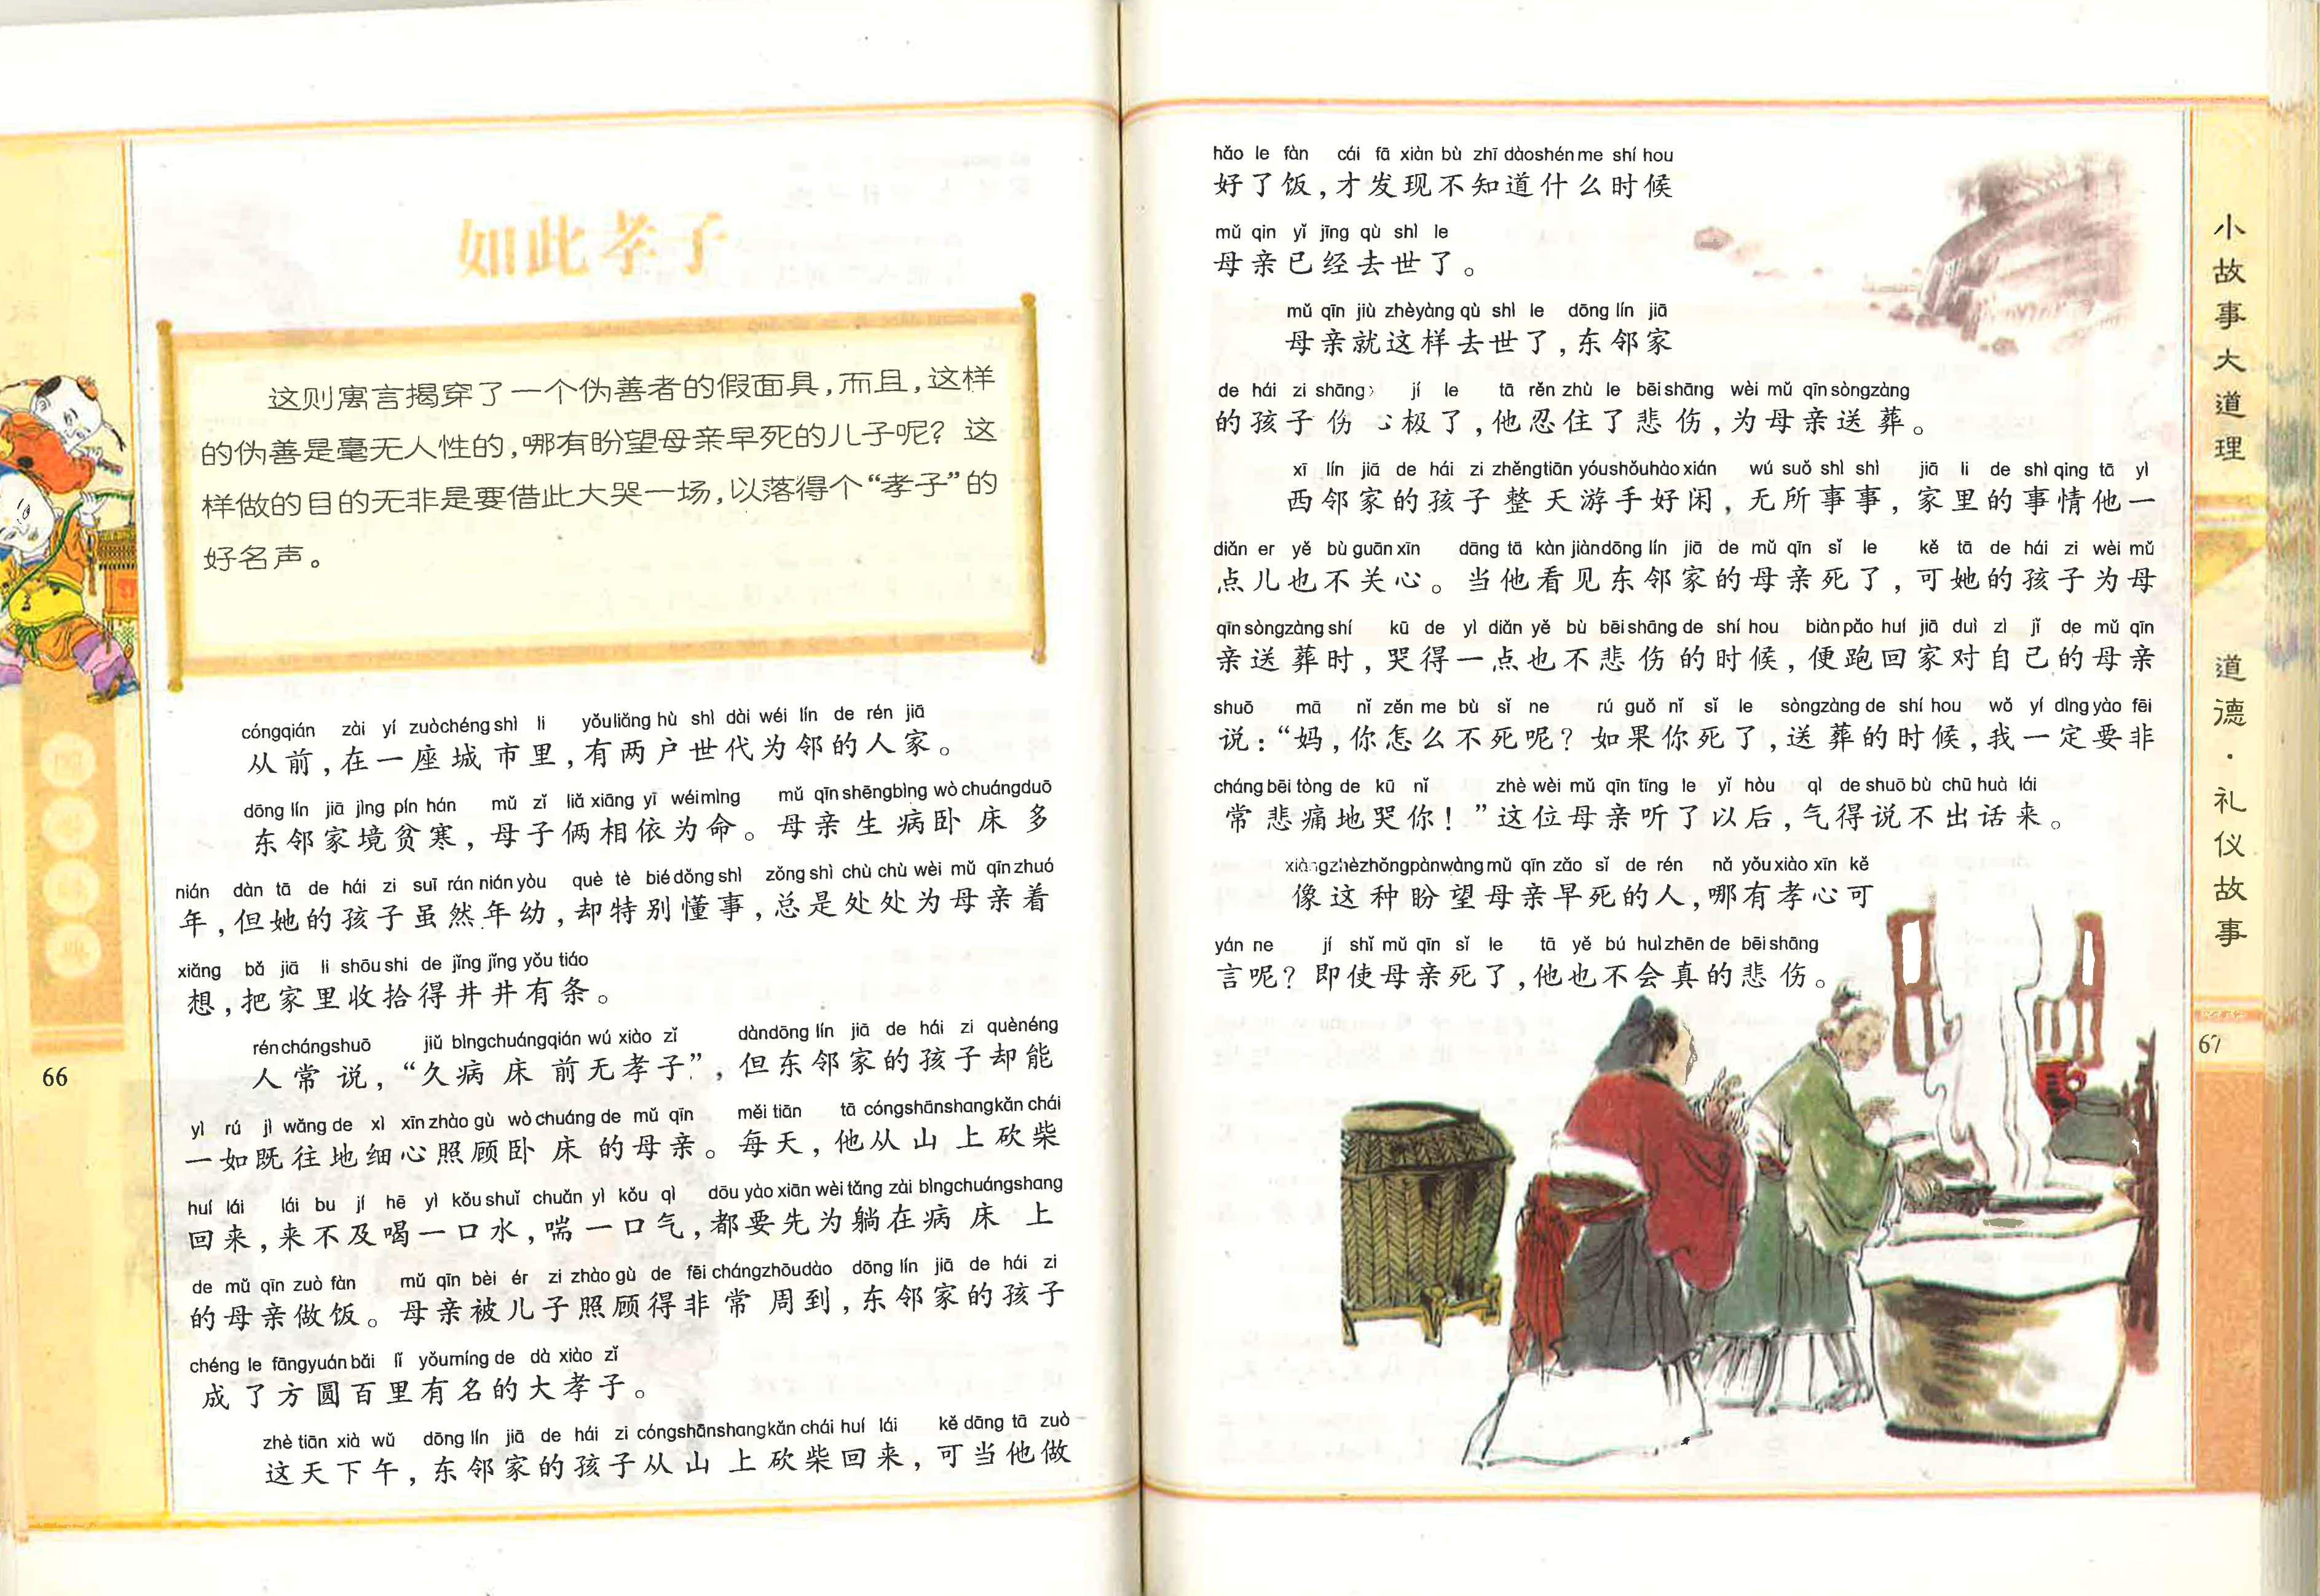 如此孝子
这则寓言揭穿了一个伪善者的假面具，而且，这样
的伪善是毫无人性的，哪有盼望母亲早死的儿子呢？这
样做的目的无非是要借此大哭一场，以落得个“孝子”的
好名声。
cóngqián zài yí zuòchéngshì li yǒuliǎng hù shì dài wéi lín de rén jiā
从前，在一座城市里，有两户世代为邻的人家。
dōng lín jiā jìng pín hán mǔ zǐ liǎ xiāng yī wéimìng mǔ qīnshēngbìng wò chuángduō
东邻家境贫寒，母子俩相依为命。母亲生病卧床多
nián dàn tā de hái zi suī rán niányòu què tè biédǒngshì zǒngshì chù chù wèi mǔ qīnzhuó
年，但她的孩子虽然年幼，却特别懂事，总是处处为母亲着
xiǎng bǎ jiā li shōushi de jǐng jǐng yǒu tiáo
想，把家里收拾得井井有条。
rénchángshuō jiǔ bìngchuángqián wú xiào zǐ dàndōng lín jiā de hái zi quènéng
人常说，“久病床前无孝子”，但东邻家的孩子却能
yì rú jì wǎng de xì xīnzhào gù wò chuáng de mǔ qīn měi tiān tā cóngshānshangkǎn chái
一如既往地细心照顾卧床的母亲。每天，他从山上砍柴
huí lái lái bu jí hē yì kǒushuǐ chuǎn yì kǒu qì dōu yào xiān wèi tǎng zài bìngchuángshang
回来，来不及喝一口水，喘一口气，都要先为躺在病床上
de mǔ qīn zuò fàn mǔ qīn bèi ér zi zhào gù de fēi chángzhōudào dōng lín jiā de hái zi
的母亲做饭。母亲被儿子照顾得非常周到，东邻家的孩子
chéng le fāngyuánbǎi lǐ yǒumíng de dà xiào zǐ
成了方圆百里有名的大孝子。
zhè tiān xià wǔ dōng lín jiā de hái zi cóngshānshangkǎn chái huí lái kě dāng tā zuò
这天下午，东邻家的孩子从山上砍柴回来，可当他做
66
hǎo le fàn cái fā xiàn bù zhī dàoshénme shí hou
好了饭，才发现不知道什么时候
mǔ qin yǐ jīng qù shì le
母亲已经去世了。
mǔ qīn jiù zhèyàng qù shì le dōng lín jiā
母亲就这样去世了，东邻家
de hái zi shāng jí le tā rěn zhù le bēishāng wèi mǔ qīnsòngzàng
的孩子伤 极了，他忍住了悲伤，为母亲送葬。
xī lín jiā de hái zi zhěngtiān yóushǒuhàoxián wú suǒ shì shì jiā li de shì qing tā yì
西邻家的孩子整天游手好闲，无所事事，家里的事情他一
diǎn er yě bù guānxīn dāng tā kàn jiàndōng lín jiā de mǔ qīn sǐ le kě tā de hái zi wèi mǔ
点儿也不关心。当他看见东邻家的母亲死了，可她的孩子为母
qīnsòngzàngshí kū de yì diǎn yě bù bēishāng de shí hou biànpǎo huí jiā duì zì jǐ de mǔ qīn
亲送葬时，哭得一点也不悲伤的时候，便跑回家对自己的母亲
shuō mā nǐ zěn me bù sǐ ne rú guǒ nǐ sǐ le sòngzàng de shí hou wǒ yí dìngyào fēi
说：“妈，你怎么不死呢？如果你死了，送葬的时候，我一定要非
cháng bēi tòng de kū nǐ zhè wèi mǔ qīn tīng le yǐ hòu qì de shuō bù chū huà lái
常悲痛地哭你！”这位母亲听了以后，气得说不出话来。
xiàngzhèzhǒngpànwàng mǔ qīn zǎo sǐ de rén nǎ yǒuxiào xīn kě
像这种盼望母亲早死的人，哪有孝心可
yán ne jí shǐ mǔ qīn sǐ le tā yě bú huìzhēn de bēishāng
言呢？即使母亲死了，他也不会真的悲伤。
小故事大道理
道德·礼仪故事
67